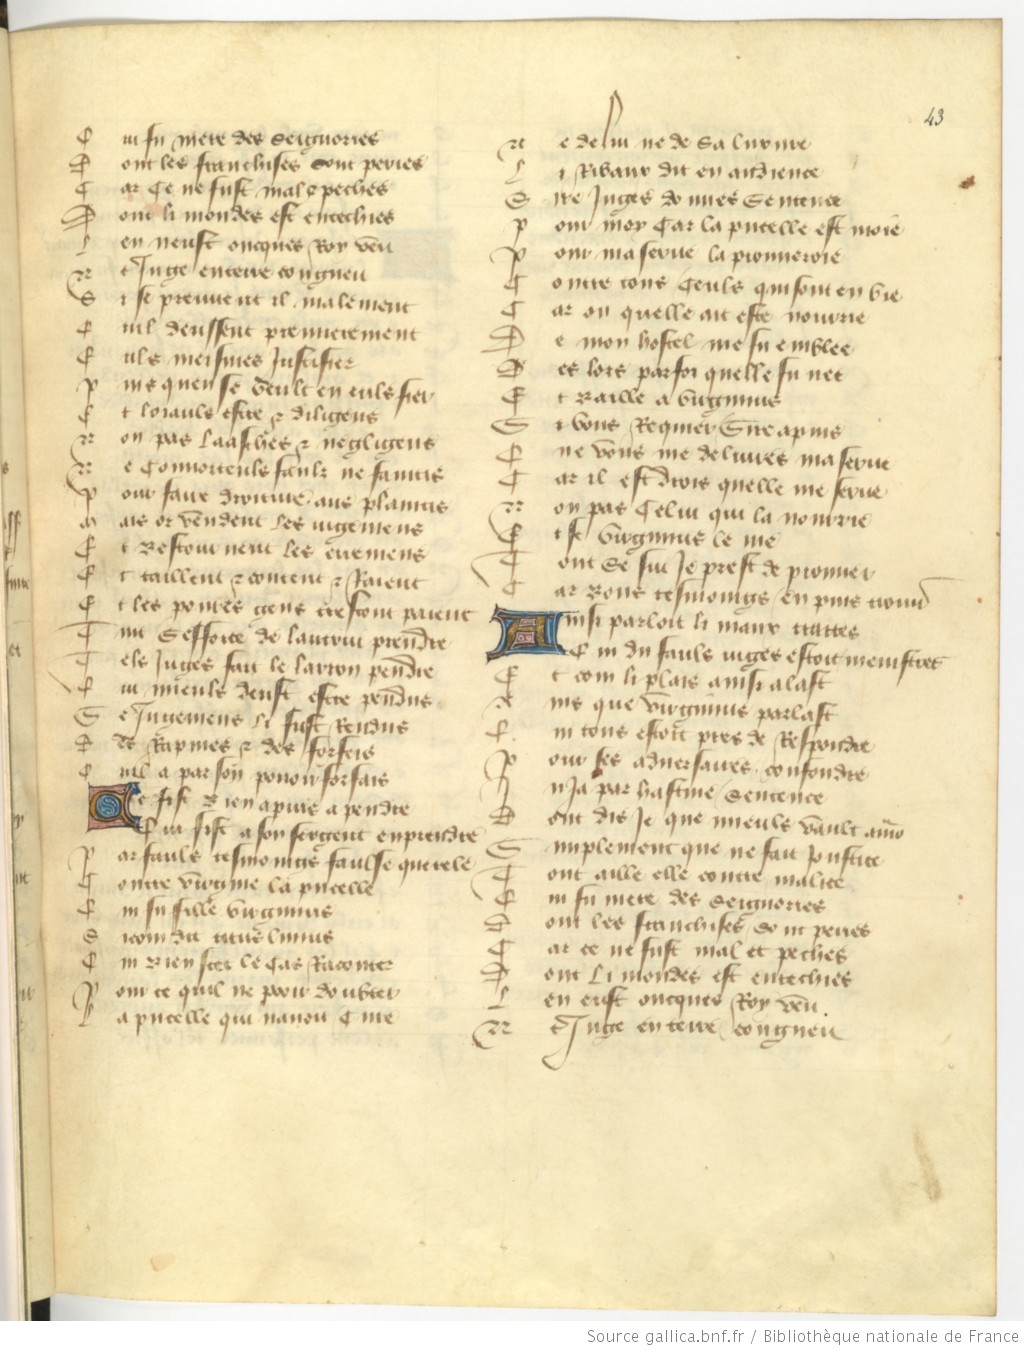 43
Qui fu mere des Seignories
Dont les franchises sont peries
Car Ce ne fust mal & peches
Dont li mondes est enteches
Len neust oncques Roy veu
Ne Juge en terre congneu
Si se preuvent il malement
Quil deussent premierement
Euls meismes Justicier
Puis quen se veult en euls fier
Et loiauls estre & diligens
Non pas Laasches & negligens
Ne Convoiteuls faulx ne faintis
Pour faire droiture aus plaintis
Mais or vendent les iugemens
Et Bestournent les erremens
Et taillent & content & Raient
Et les poures gens trestout paient
Tuit Sefforce de lautrui prendre
Tels Juges fait le larron pendre
Qui mieuls deust estre pendus
Se Jugemens li fust Rendus
Des Rapines & des forfais
Quil a par son pouoir forfais
Ne fist Bien apius a pendre
Qui fist a son sergent enprendre
Par fauls tesmoings faulse querele
Contre virgine la pucelle
Qui fu fille virginius
Si com dit titus livius
Qui Bien scet le Cas Raconter
Pour ce quil ne pooir doubter
La pucelle qui nauoit Cure
Ne de lui ne de Sa luxure
Li Ribaux dit en audience
Sire Juges donnes Sentence
Pour moy Car la pucelle est moie
Pour ma serue la prouueroie
Contre tous Ceuls qui sont en vie
Car ou quelle ait este nourrie
De mon hostel me fu emblee
Des lors par soi quelle fu nee
Et Baille a virginius
Si vous Requier Sire apius
Que vous me deliures ma serue
Car il est drois quelle me serue
Non pas Celui qui la nourrie
Et se virginius le nie
Tout Se sui Je prest de prouuer
Car Bons tesmoings en puis trouuer
Ainsi parloit li maux traittes
Qui du fauls iuges estoit menistres
Et com li plais ainsi alast
Ains que virginius parlast
Qui tous estoit pres de Respondre
Pour ses aduersaires confondre
Juja par hastiue Sentence
Dont dis Je que mieuls vault amor
Simplement que ne fait Joustice
Tout aille elle contre malice
Qui fu mere des Seignories
Dont les franchises sont peries
Car ce ne fust mal et peches
Dont Li mondes est enteches
Len eust oncques Roy veu.
Ne Juge en terre congneu
Source gallica.bnf.fr / Bibliothèque nationale de France